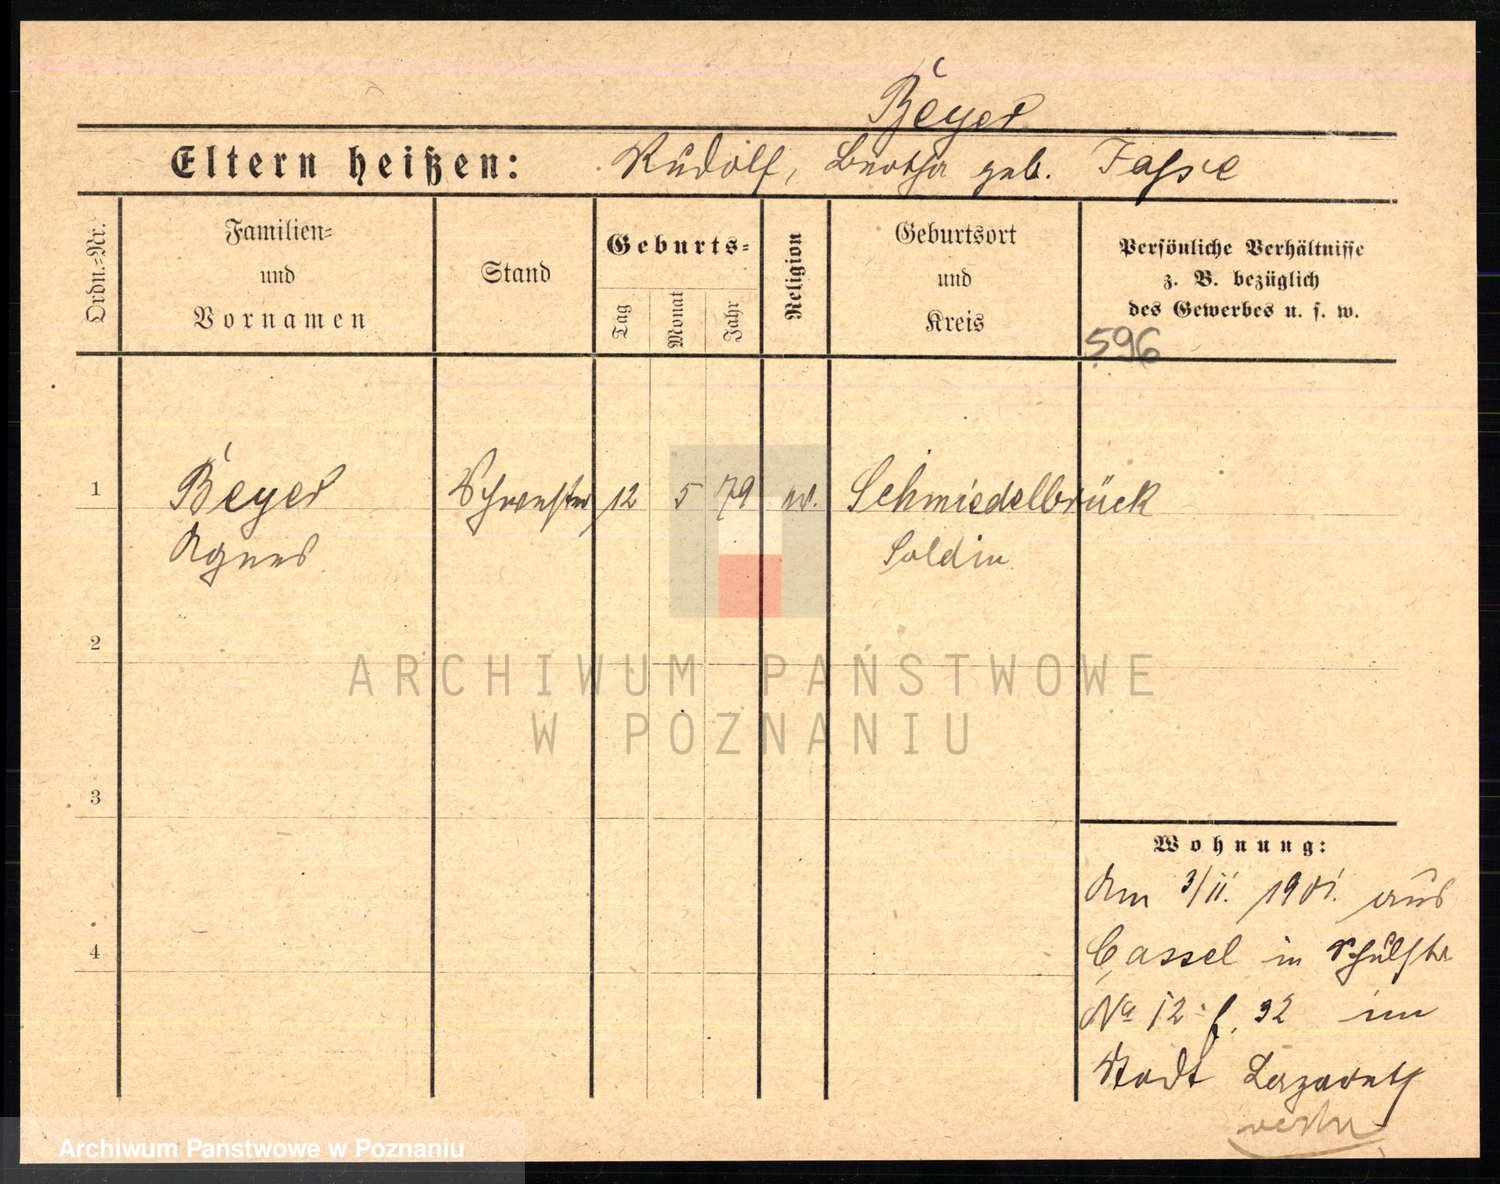 Beyer
Eltern heißen: Rudolf, Bertha geb. Fasse
Ordn.=Nr.
Familien=
und
Vornamen
Stand
Geburts=
Tag
Monat
Jahr
Religion
Geburtsort
und
Kreis
Persönliche Verhältnisse
z. B. bezüglich
des Gewerbes u. s. w.
596
1 Beyer Schwester 12 5 79 ev. Schmiedelbrück
Agnes Soldin
2
3
4
ARCHIWUM PAŃSTWOWE
W POZNANIU
Wohnung:
Am 3/11. 1901. aus
Cassel in Schulstr
No 12 f. 32 im
Stadt Lazareth
Archiwum Państwowe w Poznaniu